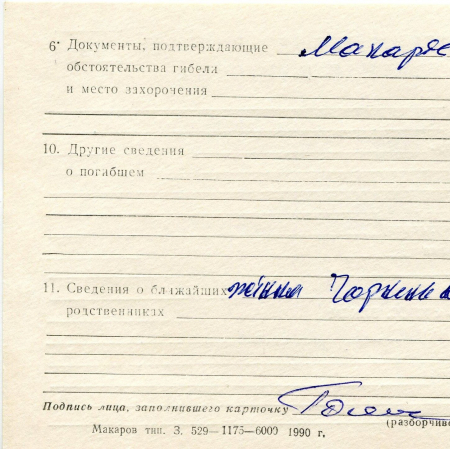 6. Документы, подтверждающие
обстоятельства гибели
и место захорочения
10. Другие сведения
о погибшем
11. Сведения о ближайших жінка
родственниках
Подпись лица, заполнившего карточку
(разборчиво
Макаров тип. З. 529—1175—6000 1990 г.